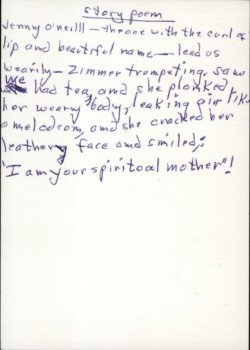 story poem
Jenny O'neill — the one with the curl of
lip and beautiful name — lead us
wearily — Zimmer trumpeting. saw
We had tea, and she plonked
her weary body, leaking gin like
a melodeon, and she cracked her
leathery face and smiled;
"I am your spiritual mother"!